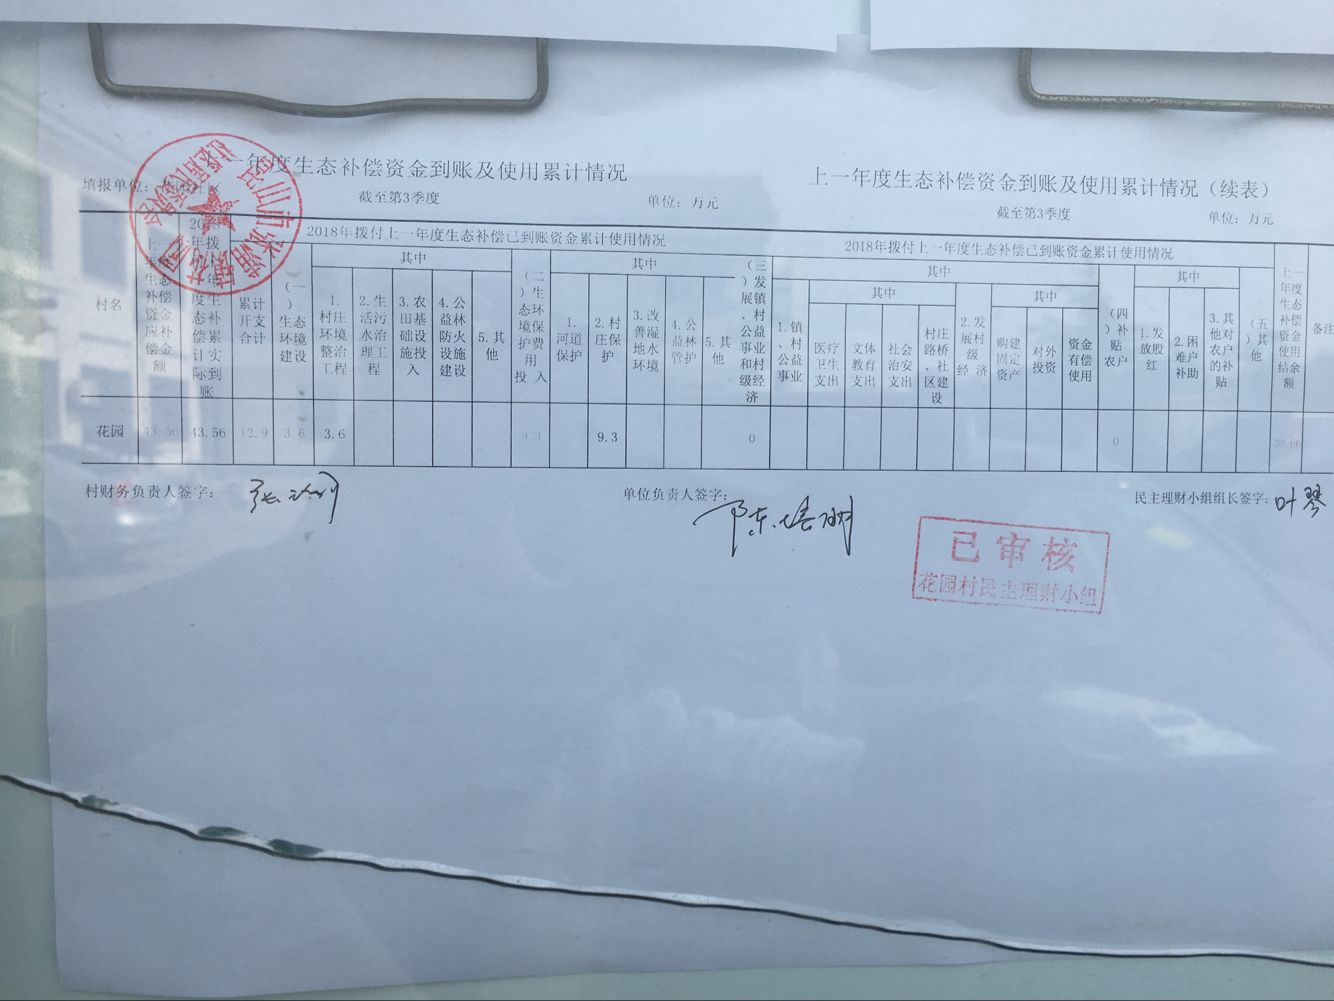 上一年度生态补偿资金到账及使用累计情况
填报单位：
截至第3季度
单位：万元
村名
上一年度生态补偿资金应补偿金额
2018年拨付上一年度生态补偿累计实际到账
2018年拨付上一年度生态补偿已到账资金累计使用情况
累计开支合计
（一）生态环境建设
其中
1.村庄环境整治工程
2.生活污水治理工程
3.农田基础设施投入
4.公益林防火设施建设
5.其他
（二）生态环境保护费用投入
其中
1.河道保护
2.村庄保护
3.改善湿地水环境
4.公益林管护
5.其他
（三）发展镇、村公益事业和村级经济
花园
43.56
43.56
12.9
3.6
3.6
9.3
9.3
0
村财务负责人签字：
单位负责人签字：
上一年度生态补偿资金到账及使用累计情况（续表）
截至第3季度
单位：万元
2018年拨付上一年度生态补偿已到账资金累计使用情况
其中
1.镇、村公益事业
其中
医疗卫生支出
文体教育支出
社会治安支出
村庄路桥、社区建设
2.发展村级经济
其中
购建固定资产
对外投资
资金有偿使用
（四）补贴农户
其中
1.发放股红
2.困难户补助
3.其他对农户的补贴
（五）其他
上一年度生态补偿资金使用结余额
备注
0
30.66
民主理财小组组长签字：叶琴
已审核
花园村民主理财小组